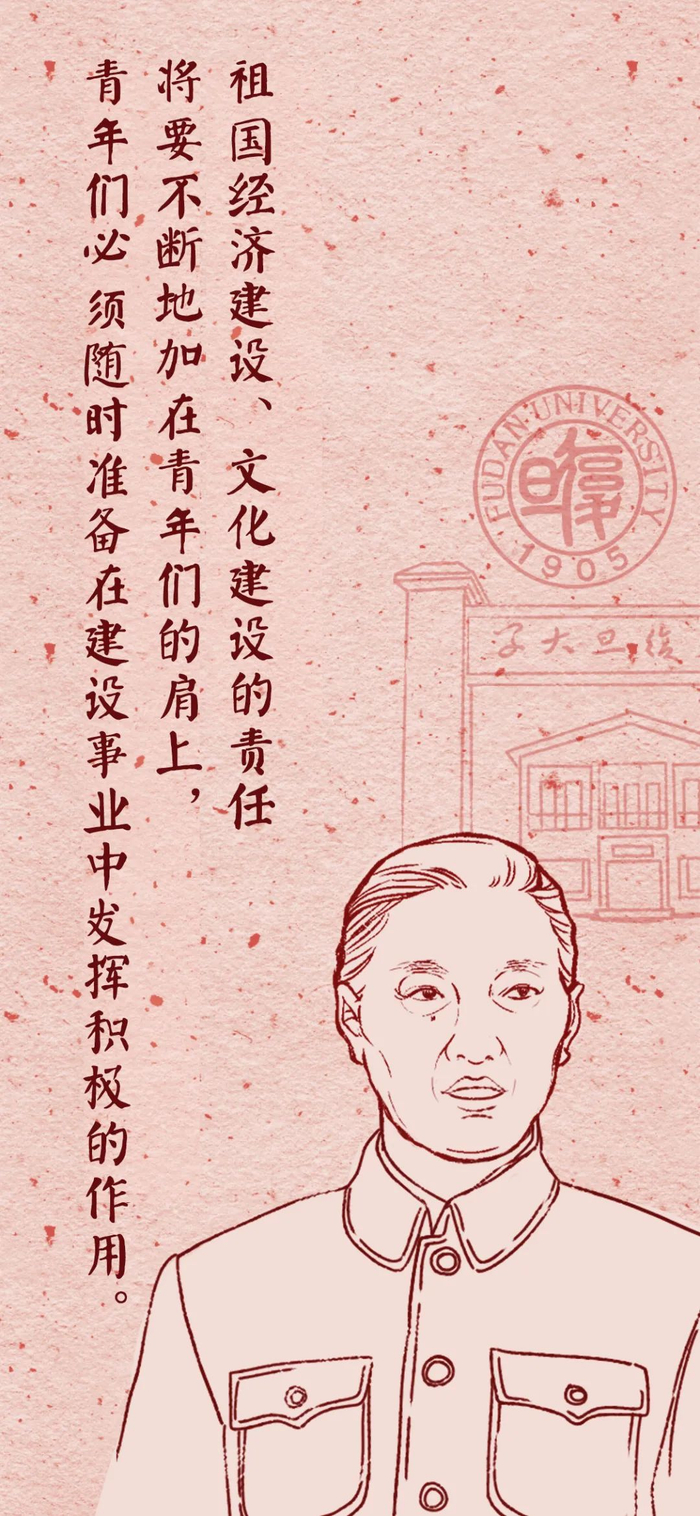 祖国经济建设、文化建设的责任
将要不断地加在青年们的肩上，
青年们必须随时准备在建设事业中发挥积极的作用。
FUDAN·UNIVERSITY
復旦
1905
学大旦复